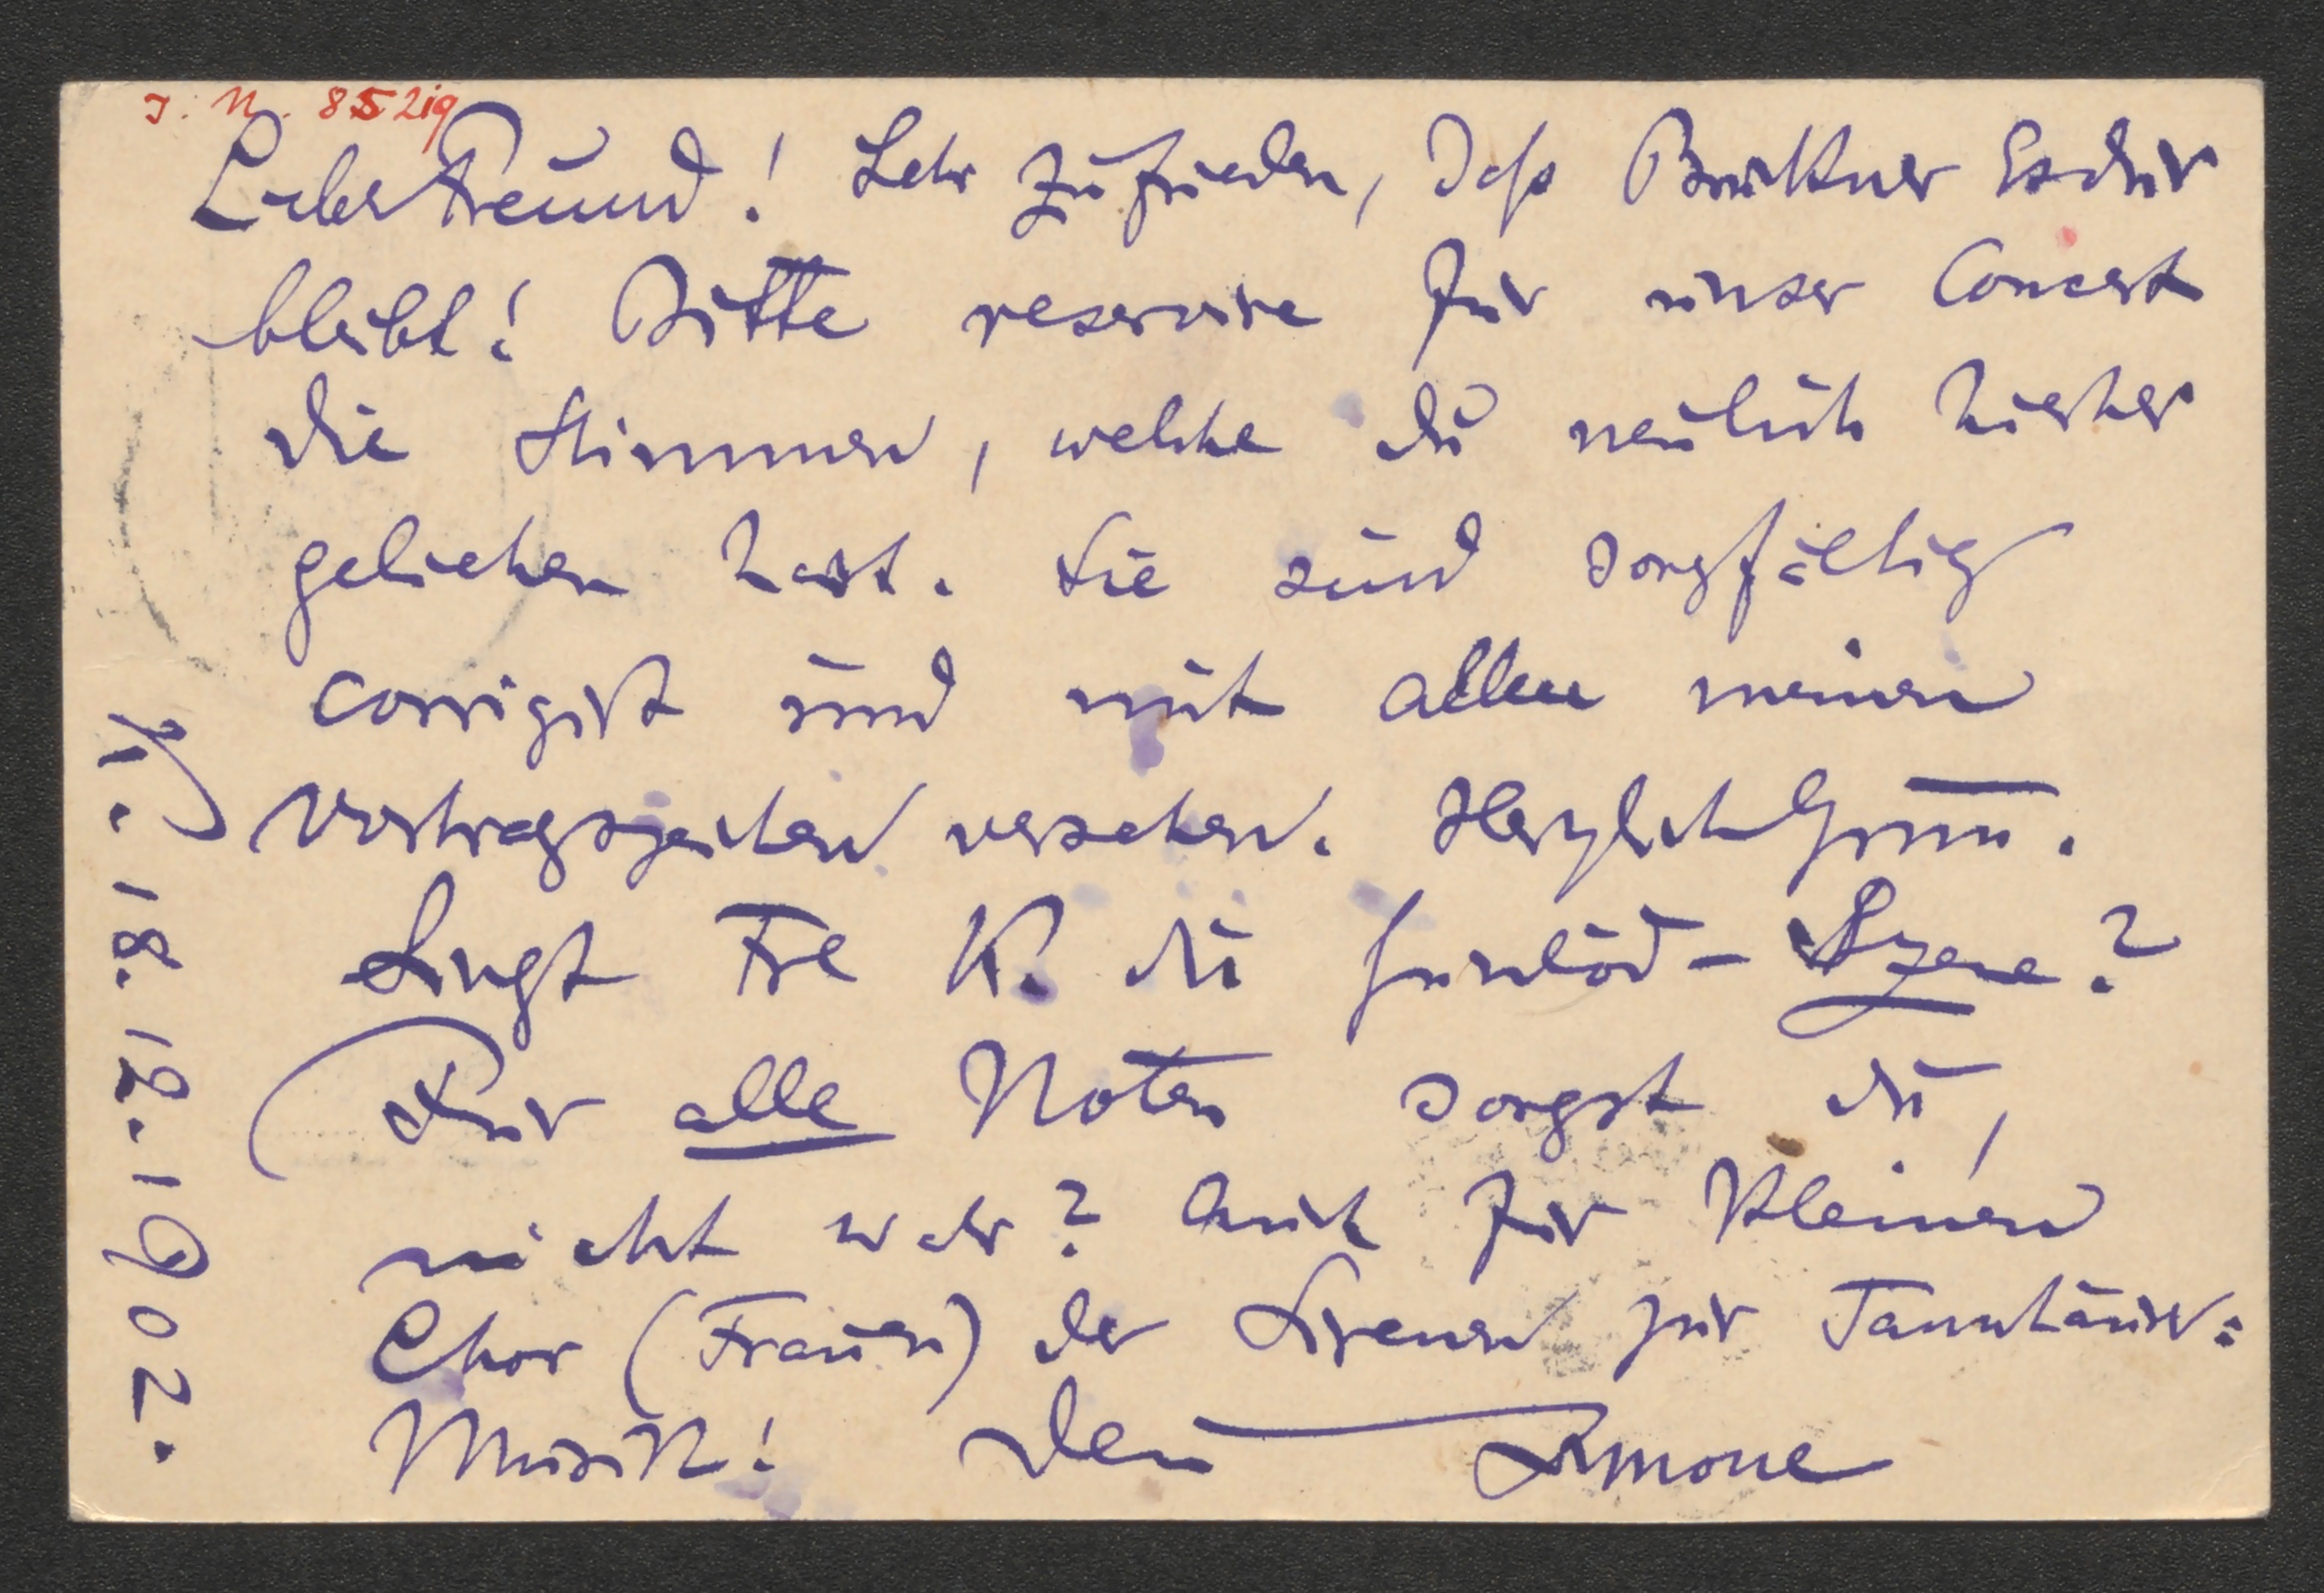 I. N. 85219
Lieber Freund! Sehr zufrieden, daß Bruckner Es dur
bleibt! Bitte reservire für unser Concert
die Stimmen, welche du neulich hierher
geliehen hast. Sie sind sorgfältig
corrigirt und mit allen meinen
Vortragszeichen versehen. Herzlich
Singt Frl K. die Szene?
Für alle Noten sorgst du,
nicht wahr? Auch für kleinen
Chor (Frauen) der Sirenen zur Tannhäuser=
Musik! Dein
18. 12. 1902.